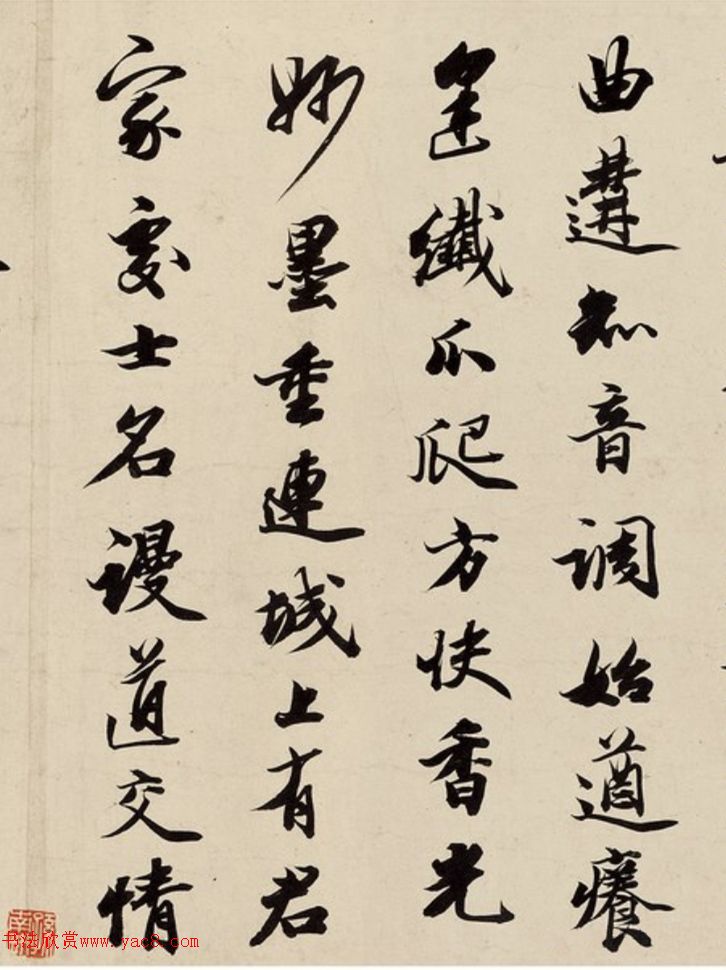 曲遘知音調始遒癢
逢纖爪爬方快香光
妙墨重連城上有君
家處士名謾道交情
书法欣赏www.yac8.com